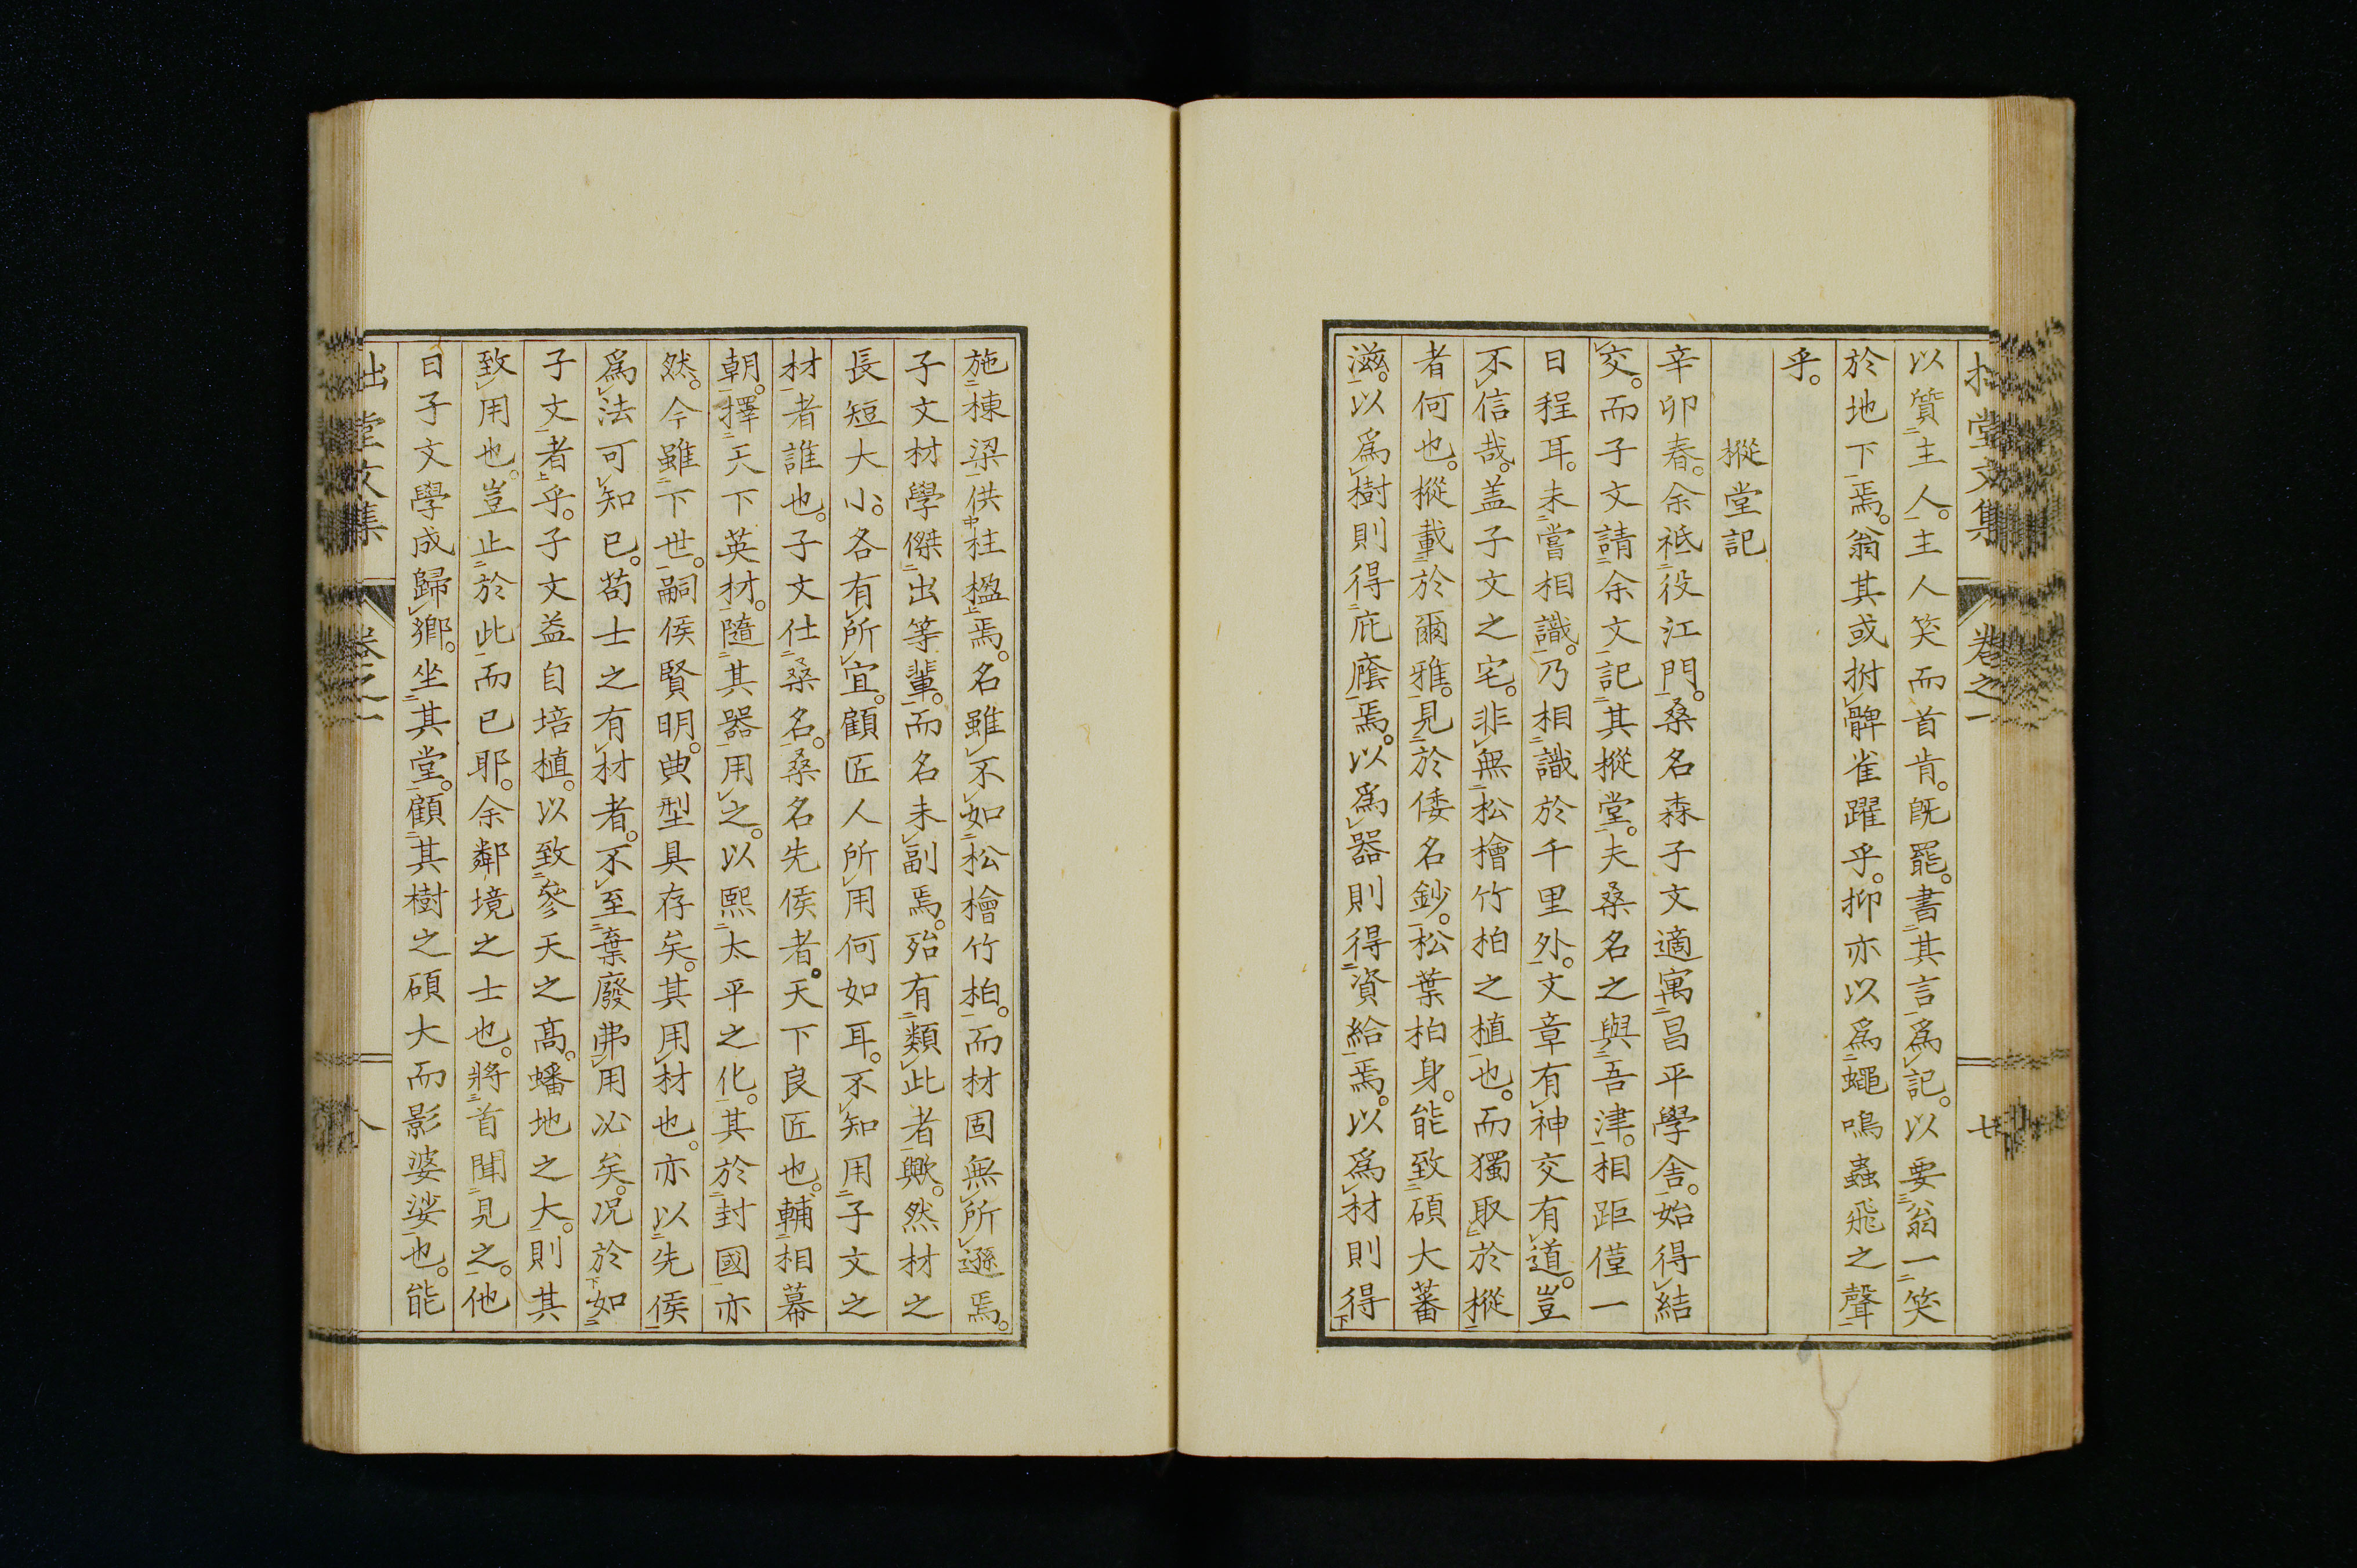 拙堂文集 卷之一 七
以質主人。主人笑而首肯。既罷。書其言爲記。以要翁一笑
於地下焉。翁其或拊髀雀躍乎。抑亦以爲蠅鳴蟲飛之聲
乎。
樅堂記
辛卯春。余祗役江門。桑名森子文適寓昌平學舍。始得結
交。而子文請余文記其樅堂。夫桑名之與吾津。相距僅一
日程耳。未嘗相識。乃相識於千里外。文章有神交有道。豈
不信哉。蓋子文之宅。非無松檜竹柏之植也。而獨取於樅
者何也。樅載於爾雅。見於倭名鈔。松葉柏身。能致碩大蕃
滋。以爲樹則得庇廕焉。以爲器則得資給焉。以爲材則得
施棟梁供柱楹焉。名雖不如松檜竹柏。而材固無所遜焉。
子文材學傑出等輩。而名未副焉。殆有類此者歟。然材之
長短大小。各有所宜。顧匠人所用何如耳。不知用子文之
材者誰也。子文仕桑名。桑名先侯者。天下良匠也。輔相幕
朝。擇天下英材。隨其器用之。以熙太平之化。其於封國亦
然。今雖下世。嗣侯賢明。典型具存矣。其用材也。亦以先侯
爲法可知已。苟士之有材者。不至棄廢弗用必矣。況於如
子文者乎。子文益自培植。以致參天之高。蟠地之大。則其
致用也。豈止於此而已耶。余鄰境之士也。將首聞見之。他
日子文學成歸鄉。坐其堂。顧其樹之碩大而影婆娑也。能
拙堂文集 卷之一 八